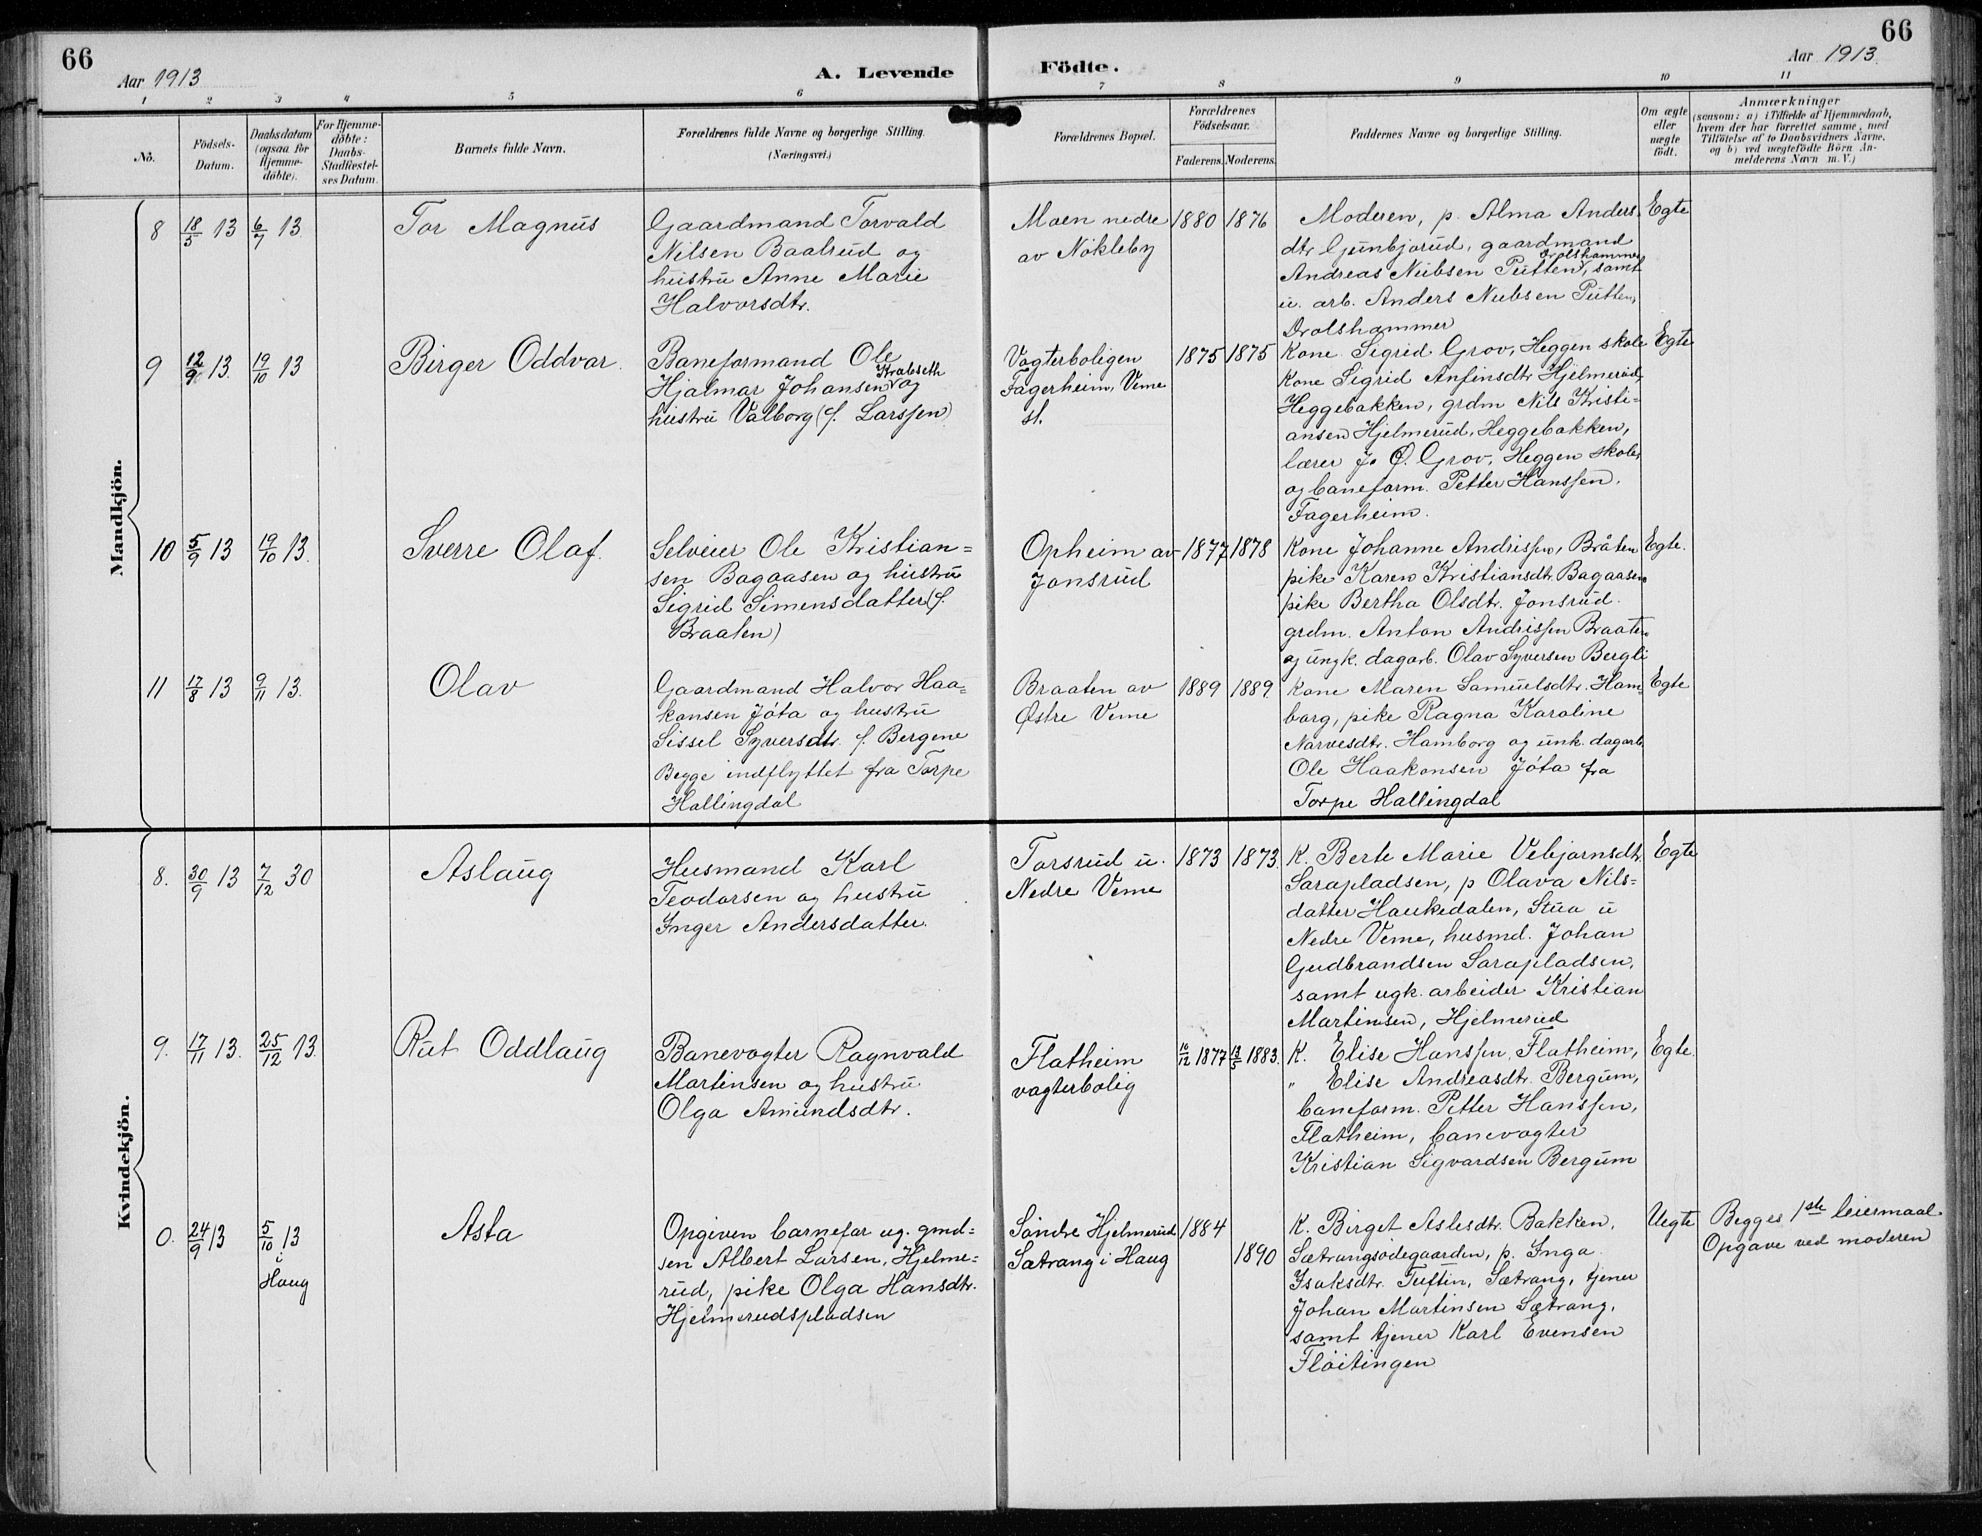 66
66
Aar 1913
A. Levende
Födte.
Aar 1913.
1
2
3
4
5
6
7
8
9
10
11
No.
Födsels-
Datum.
Daabsdatum
(ogsaa for
Hjemme-
döbte).
For Hjemme-
döbte:
Daabs-
Stadfæstel-
ses Datum.
Barnets fulde Navn.
Forældrenes fulde Navne og borgerlige Stilling.
(Næringsvei.)
Forældrenes Bopæl.
Forældrenes
Födselsaar.
Faderens.
Moderens.
Faddernes Navne og borgerlige Stilling.
Om ægte
eller
uægte
födt.
Anmærkninger
(saasom: a) i Tilfælde af Hjemmedaab,
hvem der har forrettet samme, med
Tilföielse af to Daabsvidners Navne.
og b) ved uægtefödte Börn An-
melderens Navn m. V.)
Mandkjön.
8
18/5 13
6/7 13.
Tor Magnus
Gaardmand Torvald
Nilsen Baalrud og
hustru Anne Marie
Halvorsdtr.
Moen nedre
av Nökleby
1880
1876
Moderen, p. Alma Anders-
dtr Gunbjørud, gaardmand
Drolshammer
Andreas Nubsen Putten, samt
u. arb. Anders Nubsen Putten,
Drolshammer
Egte
9
12/9 13.
19/10 13
Birger Oddvar.
Baneformand Ole
Krabseth
Hjalmar Johansen og
hustru Valborg (f. Larssen)
Vagterboligen
Fagerheim, Veme
st.
1875
1875
Kone Sigrid Grov, Heggen skole
Kone Sigrid Anfinsdtr Hjelmerud,
Heggebakken, grdm Nils Kristi-
ansen Hjelmerud, Heggebakken,
lærer J. O. Grov, Heggen skole,
og baneform. Petter Hanssen,
Fagerheim.
Egte
10
5/9 13
19/10 13.
Sverre Olaf.
Selveier Ole Kristian=
sen Bagaasen og hustru
Sigrid Simensdatter (f.
Braaten)
Opheim av
Jonsrud
1877
1878
Kone Johanne Andrissen, Bråten
pike Karen Kristiansdtr. Bagaasen
pike Bertha Olsdtr. Jonsrud.
grdm. Anton Andrissen Braaten
og ungk. dagarb. Olav Syversen Bergli
Egte.
11
17/8 13
9/11 13.
Olav
Gaardmand Halvor Haa-
konsen Jóta og hustru
Sissel Syversdtr. f. Bergene
Begge indflyttet fra Torpe
Hallingdal
Braaten av
Østre Veme
1889
1889.
Kone Maren Samuelsdtr. Ham
borg, pike Ragna Karoline
Narvesdtr. Hamborg og unk. dagarb.
Ole Haakonsen Jóta fra
Torpe Hallingdal
Egte
Kvindekjön.
8.
30/9 13
7/12 30
Aslaug
Husmand Karl
Teodorsen og hustru
Inger Andersdatter.
Torsrud u.
Nedre Veme
1873
1873.
K. Berte Marie Vebjørnsdtr.
Sarapladsen, p Olava Nils=
datter Haukedalen, Stua u
Nedre Veme, husmd. Johan
Gudbrandsen Sarapladsen,
samt ugk. arbeider Kristian
Martinsen, Hjelmerud
Egte
9.
17/11 13.
25/12 13.
Rut Oddlaug
Banevogter Ragnvald
Martinsen og hustru
Olga Amundsdtr.
Flatheim
vagterbolig
1877
1883.
K. Elise Hanssen, Flatheim,
" Elise Andreasdtr. Bergum,
baneform. Petter Hanssen,
Flatheim, banevogter
Kristian Sigvardsen Bergum
Egte.
0.
24/9 13
5/10 13
i
Haug
Asta
Opgiven barnefar ug. gmd=
sen Albert Larsen, Hjelme-
rud, pike Olga Hansdtr.
Hjelmerudspladsen
Söndre Hjelmerud
Sætrang i Haug
1884
1890
K. Birget Aslesdtr. Bakken,
Sætrangsödegaarden, p. Inga
Isaksdtr. Tuftin, Sætrang, tjener
Johan Martinsen Sætrang,
samt tjener Karl Evensen
Flöitingen
Uegte
Begges 1ste leiermaal.
Opgave ved moderen